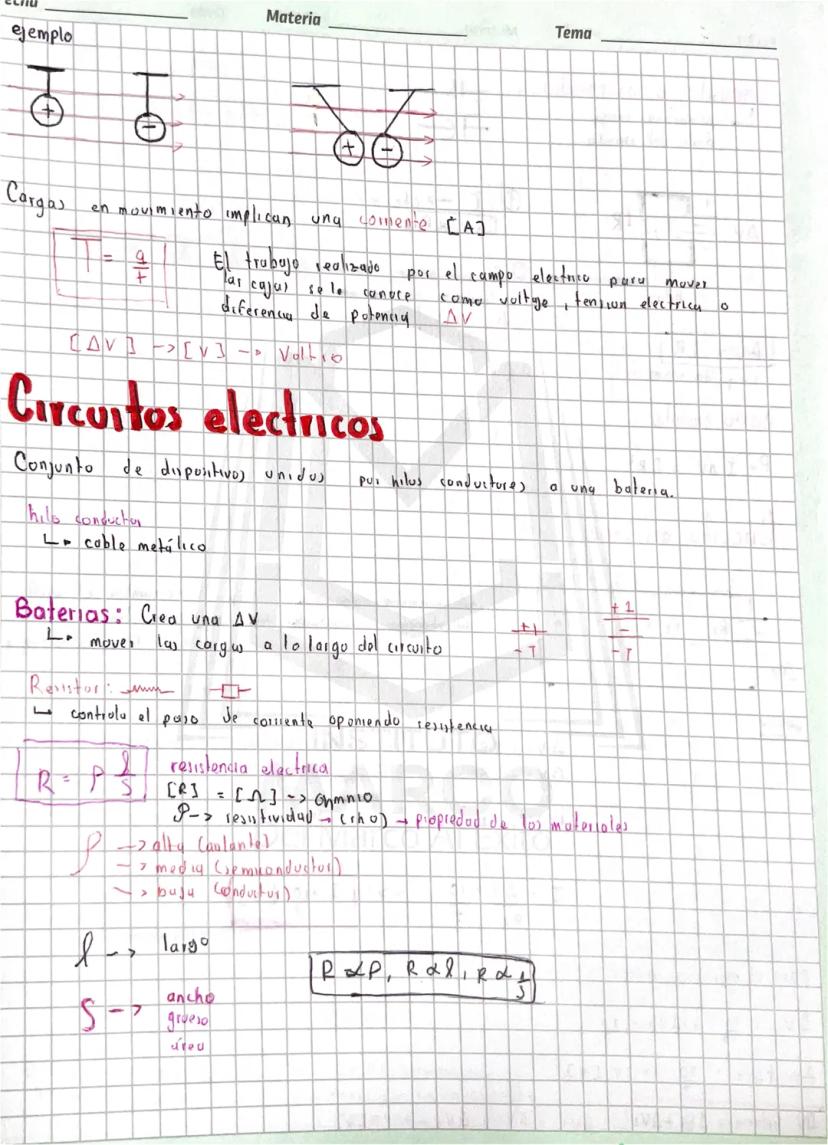 echa
Materia
Tema
ejemplo
+ - + -
Cargas en movimiento implican una corriente [A]
I = q/t
El trabajo realizado por el campo electrico para mover
las cajas se lo conoce como voltaje, tension electrica o
diferencia de potencia ΔV
[ΔV] -> [V] -> Voltio
Circuitos electricos
Conjunto de dispositivos unidos por hilos conductores a una bateria.
hilo conductor
↳ cable metálico
Baterias: Crea una ΔV
↳ mover las cargas a lo largo del circuito
+1
-1
+1
-
-1
Resistor:
↳ controla el paso de corriente oponiendo resistencia
R = ρ l/S
resistencia electrica
[R] = [Ω] -> Ohmnio
ρ -> resistividad -> (rho) -> propiedad de los materiales
ρ -> alta (aislante)
-> media (semiconductor)
-> baja (conductor)
l -> largo
S -> ancho
grueso
área
R α ρ, R α l, R α 1/S